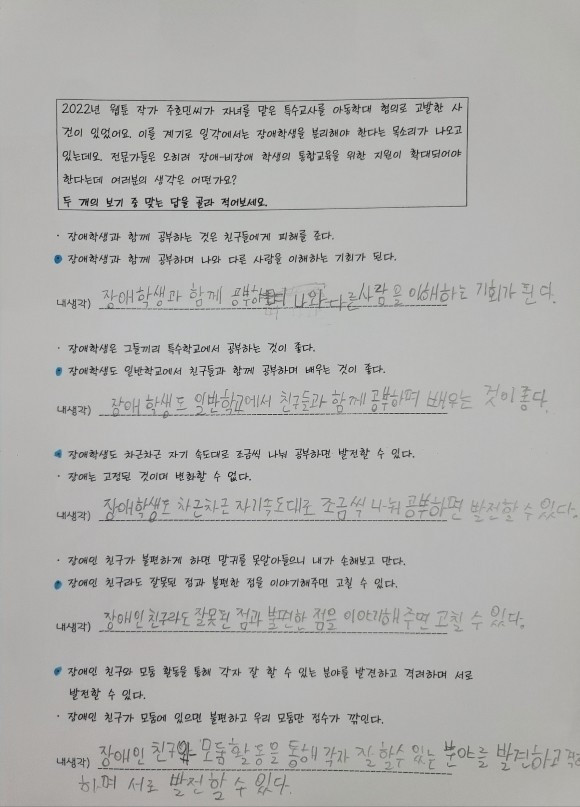 2022년 웹툰 작가 주호민씨가 자녀를 맡은 특수교사를 아동학대 혐의로 고발한 사
건이 있었어요. 이를 계기로 일각에서는 장애학생을 분리해야 한다는 목소리가 나오고
있는데요. 전문가들은 오히려 장애-비장애 학생의 통합교육을 위한 지원이 확대되어야
한다는데 여러분의 생각은 어떤가요?
두 개의 보기 중 맞는 답을 골라 적어보세요.
· 장애학생과 함께 공부하는 것은 친구들에게 피해를 준다.
· 장애학생과 함께 공부하며 나와 다른 사람을 이해하는 기회가 된다.
내생각) 장애학생과 함께 공부하며 나와 다른 사람을 이해하는 기회가 된다.
· 장애학생은 그들끼리 특수학교에서 공부하는 것이 좋다.
· 장애학생도 일반학교에서 친구들과 함께 공부하며 배우는 것이 좋다.
내생각) 장애학생도 일반학교에서 친구들과 함께 공부하며 배우는 것이 좋다.
· 장애학생도 차근차근 자기 속도대로 조금씩 나눠 공부하면 발전할 수 있다.
· 장애는 고정된 것이며 변화할 수 없다.
내생각) 장애학생도 차근차근 자기속도대로 조금씩 나눠 공부하면 발전할 수 있다.
· 장애인 친구가 불편하게 하면 말귀를 못알아들으니 내가 손해보고 만다.
· 장애인 친구라도 잘못된 점과 불편한 점을 이야기해주면 고칠 수 있다.
내생각) 장애인 친구라도 잘못된 점과 불편한 점을 이야기해주면 고칠 수 있다.
· 장애인 친구와 모둠 활동을 통해 각자 잘 할 수 있는 분야를 발견하고 격려하며 서로
발전할 수 있다.
· 장애인 친구가 모둠에 있으면 불편하고 우리 모둠만 점수가 깎인다.
내생각) 장애인 친구와 모둠활동을 통해 각자 잘할수 있는 분야를 발견하고 격려
하며 서로 발전할 수 있다.